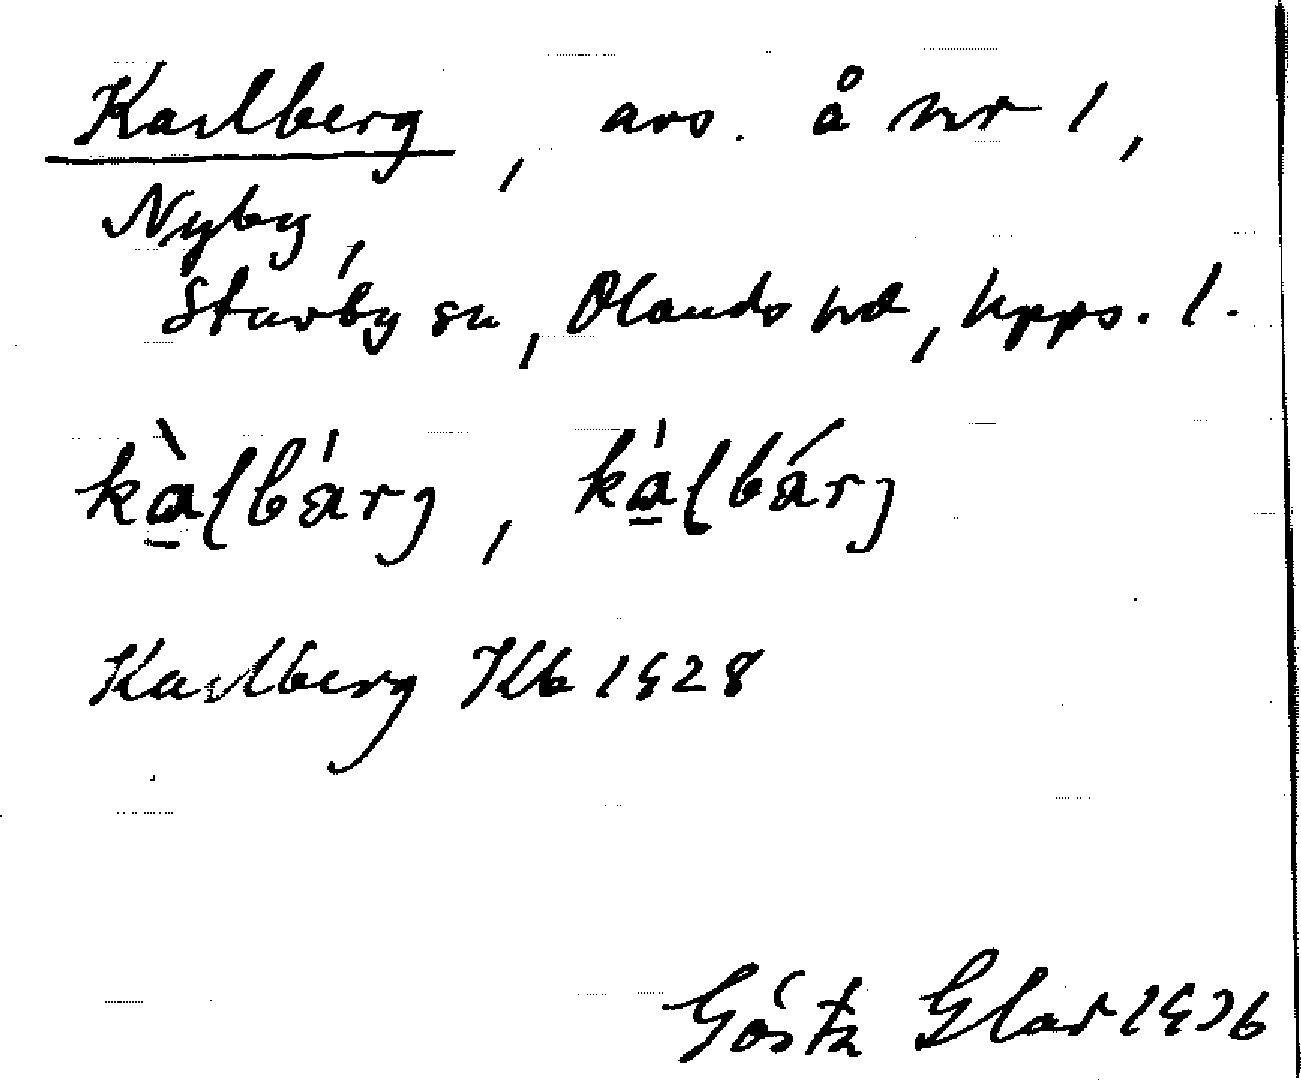 Karlberg, avs. å nr 1,
Nyby,
Stavby sn, Olands hd, Upps. l.
kàlbärj, kálbärj
Karlberg Kb 1928
Gösta 1936